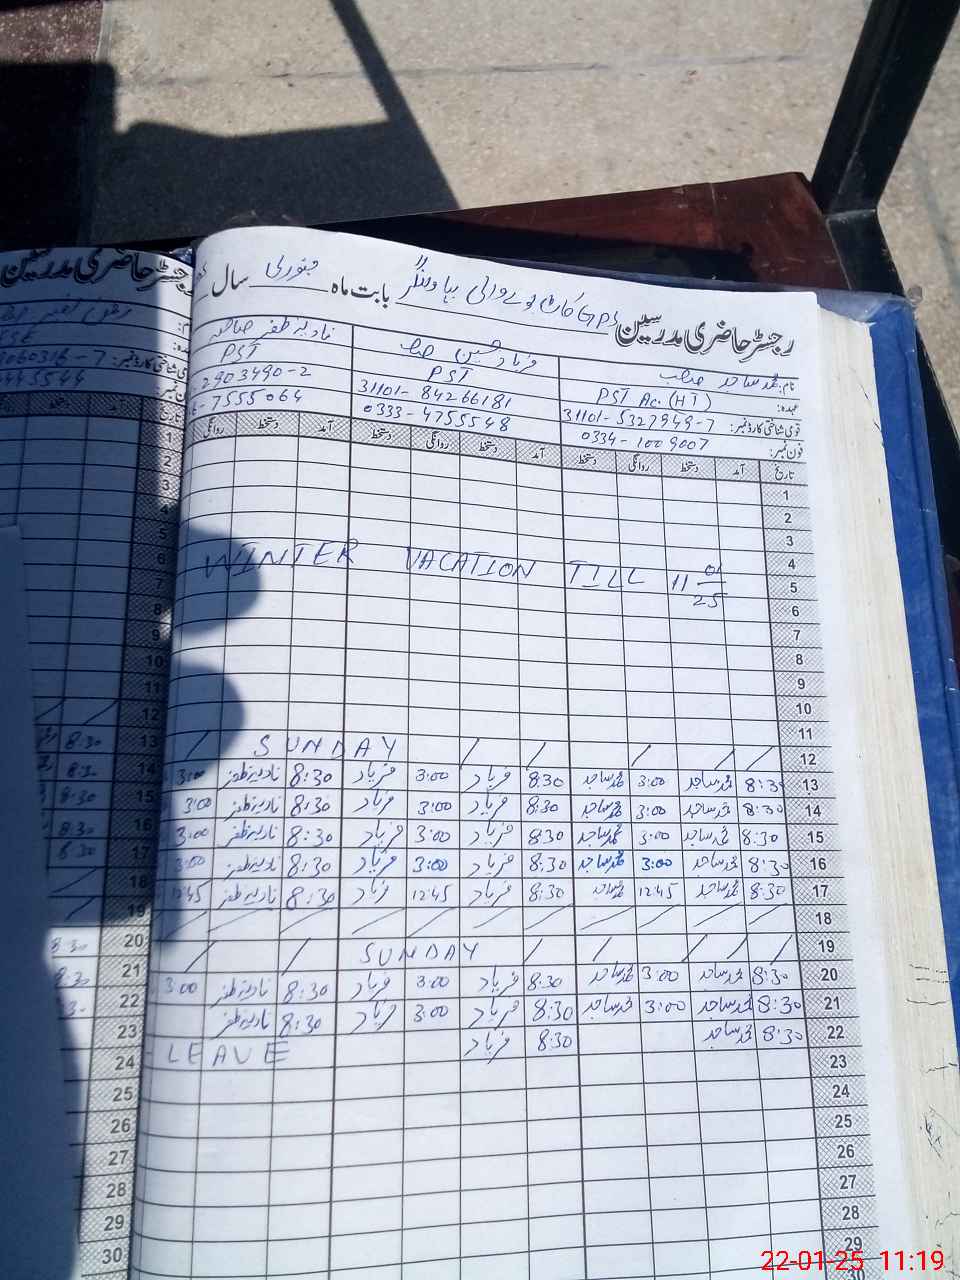 رجسٹر حاضری مدرسین GPS بہاولنگر بابت ماہ جنوری سال
نام: محمد ساجد صاحب
عہدہ: PST Ac. (HT)
قومی شناختی کارڈ نمبر: 31101-5327949-7
فون نمبر: 0334-1009007
فرہاد حسین صاحب
PST
31101-84266181
0333-4755548
نادیہ ظفر صاحبہ
PST
2903490-2
6-7555064
تاریخ آمد دستخط روانگی دستخط آمد دستخط روانگی دستخط آمد دستخط روانگی
1
2
3
4
WINTER VACATION TILL 11 01/25
5
6
7
8
9
10
11
12 / / / SUNDAY / / /
13 8:30 محمد ساجد 3:00 محمد ساجد 8:30 فرہاد 3:00 فرہاد 8:30 نادیہ ظفر 3:00
14 8:30 محمد ساجد 3:00 محمد ساجد 8:30 فرہاد 3:00 فرہاد 8:30 نادیہ ظفر 3:00
15 8:30 محمد ساجد 3:00 محمد ساجد 8:30 فرہاد 3:00 فرہاد 8:30 نادیہ ظفر 3:00
16 8:30 محمد ساجد 3:00 محمد ساجد 8:30 فرہاد 3:00 فرہاد 8:30 نادیہ ظفر 3:00
17 8:30 محمد ساجد 12:45 محمد ساجد 8:30 فرہاد 12:45 فرہاد 8:30 نادیہ ظفر 12:45
18
19 SUNDAY
20 8:30 محمد ساجد 3:00 محمد ساجد 8:30 فرہاد 3:00 فرہاد 8:30 نادیہ ظفر 3:00
21 8:30 محمد ساجد 3:00 محمد ساجد 8:30 فرہاد 3:00 فرہاد 8:30 نادیہ ظفر
22 8:30 محمد ساجد 8:30 فرہاد LEAVE
23
24
25
26
27
28
29
30
رجسٹر حاضری مدرسین
قومی شناختی کارڈ نمبر: 060316-7
4445544
تاریخ
1
2
3
4
5
6
7
8
9
10
11
12
13 8:30
14 8:30
15 8:30
16 8:30
17 8:30
18
19
20 8:30
21 8:30
22
23
24
25
26
27
28
29
30
22-01-25 11:19